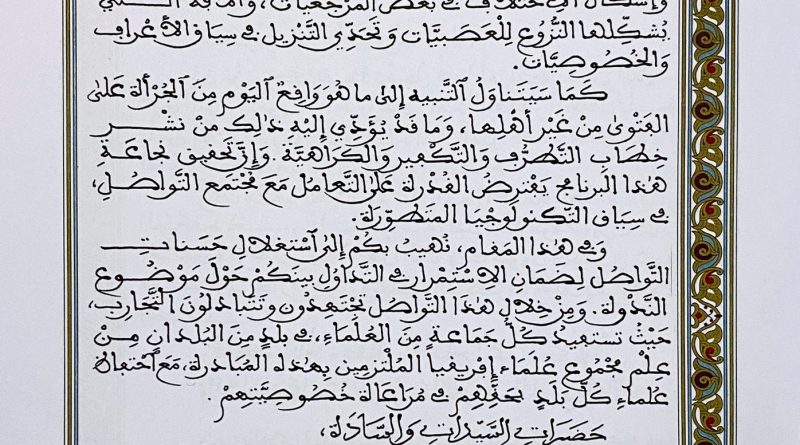 وإشكال الاختلاف في بعض المرجعيات، والآفة التي
يُشكِّلها النُّزُوع لِلْعَصَبِيَّات وَتَحَدِّي التَّنْزِيل في سِيَاق الأعْرافِ
وَالخُصُوصِيَّات.
كَمَا سَيَتَنَاوَلُ التَّنبيه إلى ما هُوَ وَاقِعٌ اليَوْم مِنَ الجُرْأة عَلى
الفَتْوى مِنْ غَيْر أهْلِها، وَمَا قَدْ يُؤَدِّي إلَيْهِ ذلِك مِنْ نَشْرِ
خِطابِ التَّطَرُّف وَالتَّكْفِير وَالكَرَاهِيَّة. وَإنَّ تَحْقِيق نَجَاعَةِ
هَذا البرنامج يَفْتَرِضُ القُدْرة عَلى التَّعامُل مَعَ مُجْتَمع التَّواصُلِ،
في سِيَاقِ التّكنُولُوجْيا المتَطَوِّرَة.
وَفي هَذا المَقام، نُهيبُ بكُمْ إلى اسْتغلالِ حَسَناتِ
التَّواصُل لِضَمَانِ الاسْتِمْرار في التَّداوُلِ بينَكُمْ حَوْلَ مَوْضُوع
النَّدْوة. وَمِنْ خِلالِ هَذا التَّواصُلِ تَجْتَهِدُون وَتَتَبادَلُونَ التَّجَارِب،
حَيْثُ تستفيدُ كُلُّ جَماعَةٍ مِنَ العُلَماءِ، في بلَدٍ مِنَ البُلدانِ مِنْ
عِلْم مَجْمُوعِ عُلَماء إفْريقيا المُلْتزمِين بِهذه المُبَادَرة، مَعَ احْتِفاظ
عُلَماءِ كُلِّ بَلَدٍ بحَقِّهِمْ في مُرَاعَاةِ خُصُوصِيَّتِهِمْ.
حَضَراتِ السَّيِّداتِ وَالسَّادَة،